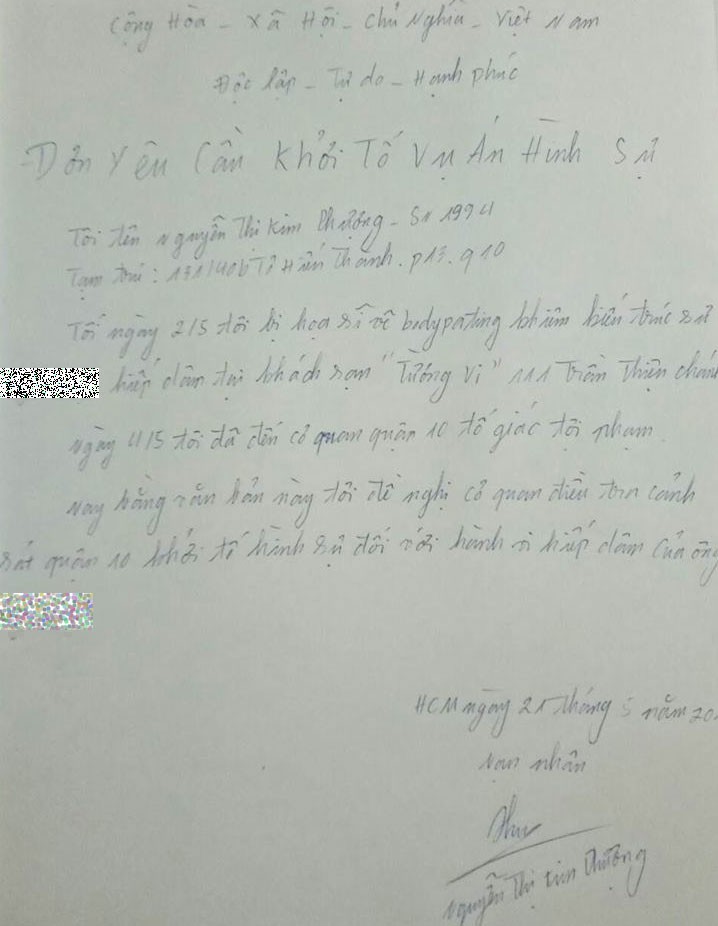 Cộng Hòa - Xã Hội - Chủ Nghĩa - Việt Nam
Độc lập - Tự do - Hạnh phúc
Đơn Yêu Cầu Khởi Tố Vụ Án Hình Sự
Tôi tên Nguyễn Thị Kim Phượng - SN 1994
Tạm trú: 131/40b Tô Hiến Thành. p13. q10
Tối ngày 2/5 tôi bị họa sĩ vẽ bodypating khiêm kiến trúc sư
hiếp dâm tại khách sạn "Tường Vi" 111 Trần Thiện Chánh
Ngày 4/5 tôi đã đến cơ quan quận 10 tố giác tội phạm.
Nay bằng văn bản này tôi đề nghị cơ quan điều tra cảnh
sát quận 10 khởi tố hình sự đối với hành vi hiếp dâm của ông
HCM ngày 21 tháng 5 năm 20
Nạn nhân
Nguyễn Thị Kim Phượng